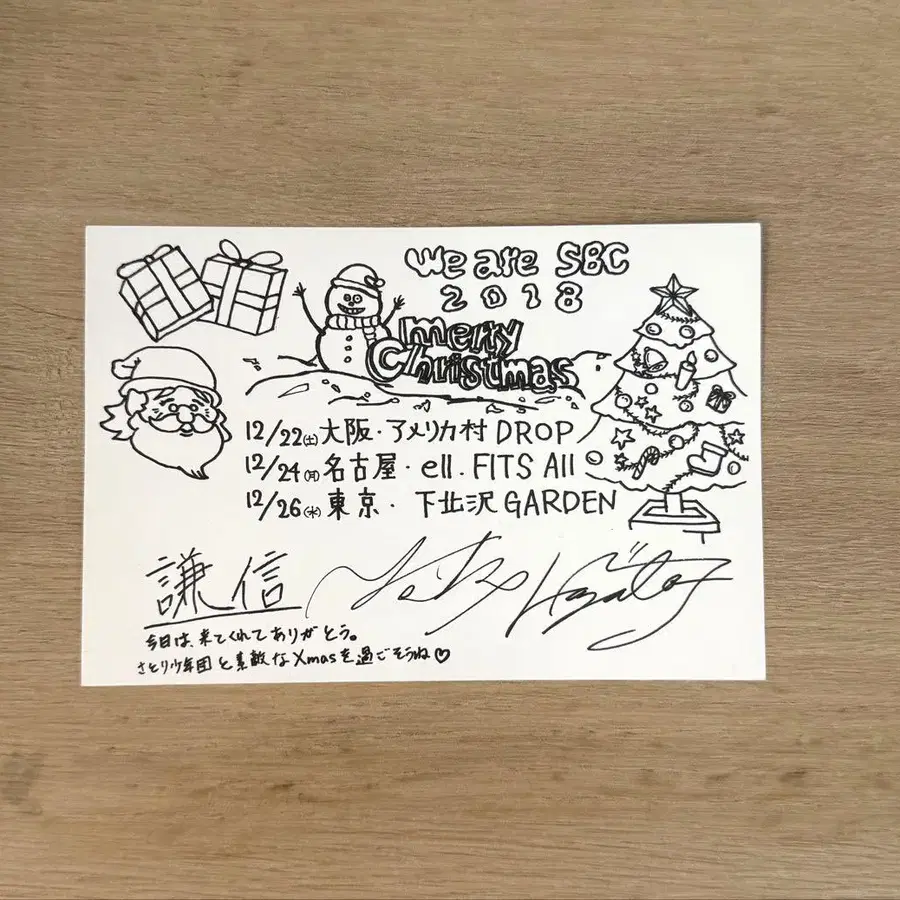 we are SBC
2018
merry
Christmas
12/22(土)大阪・アメリカ村 DROP
12/24(月)名古屋・ell.FITS All
12/26(水)東京・下北沢 GARDEN
謙信
今日は、来てくれてありがとう。
さとり少年団と素敵なXmasを過ごそうね♡